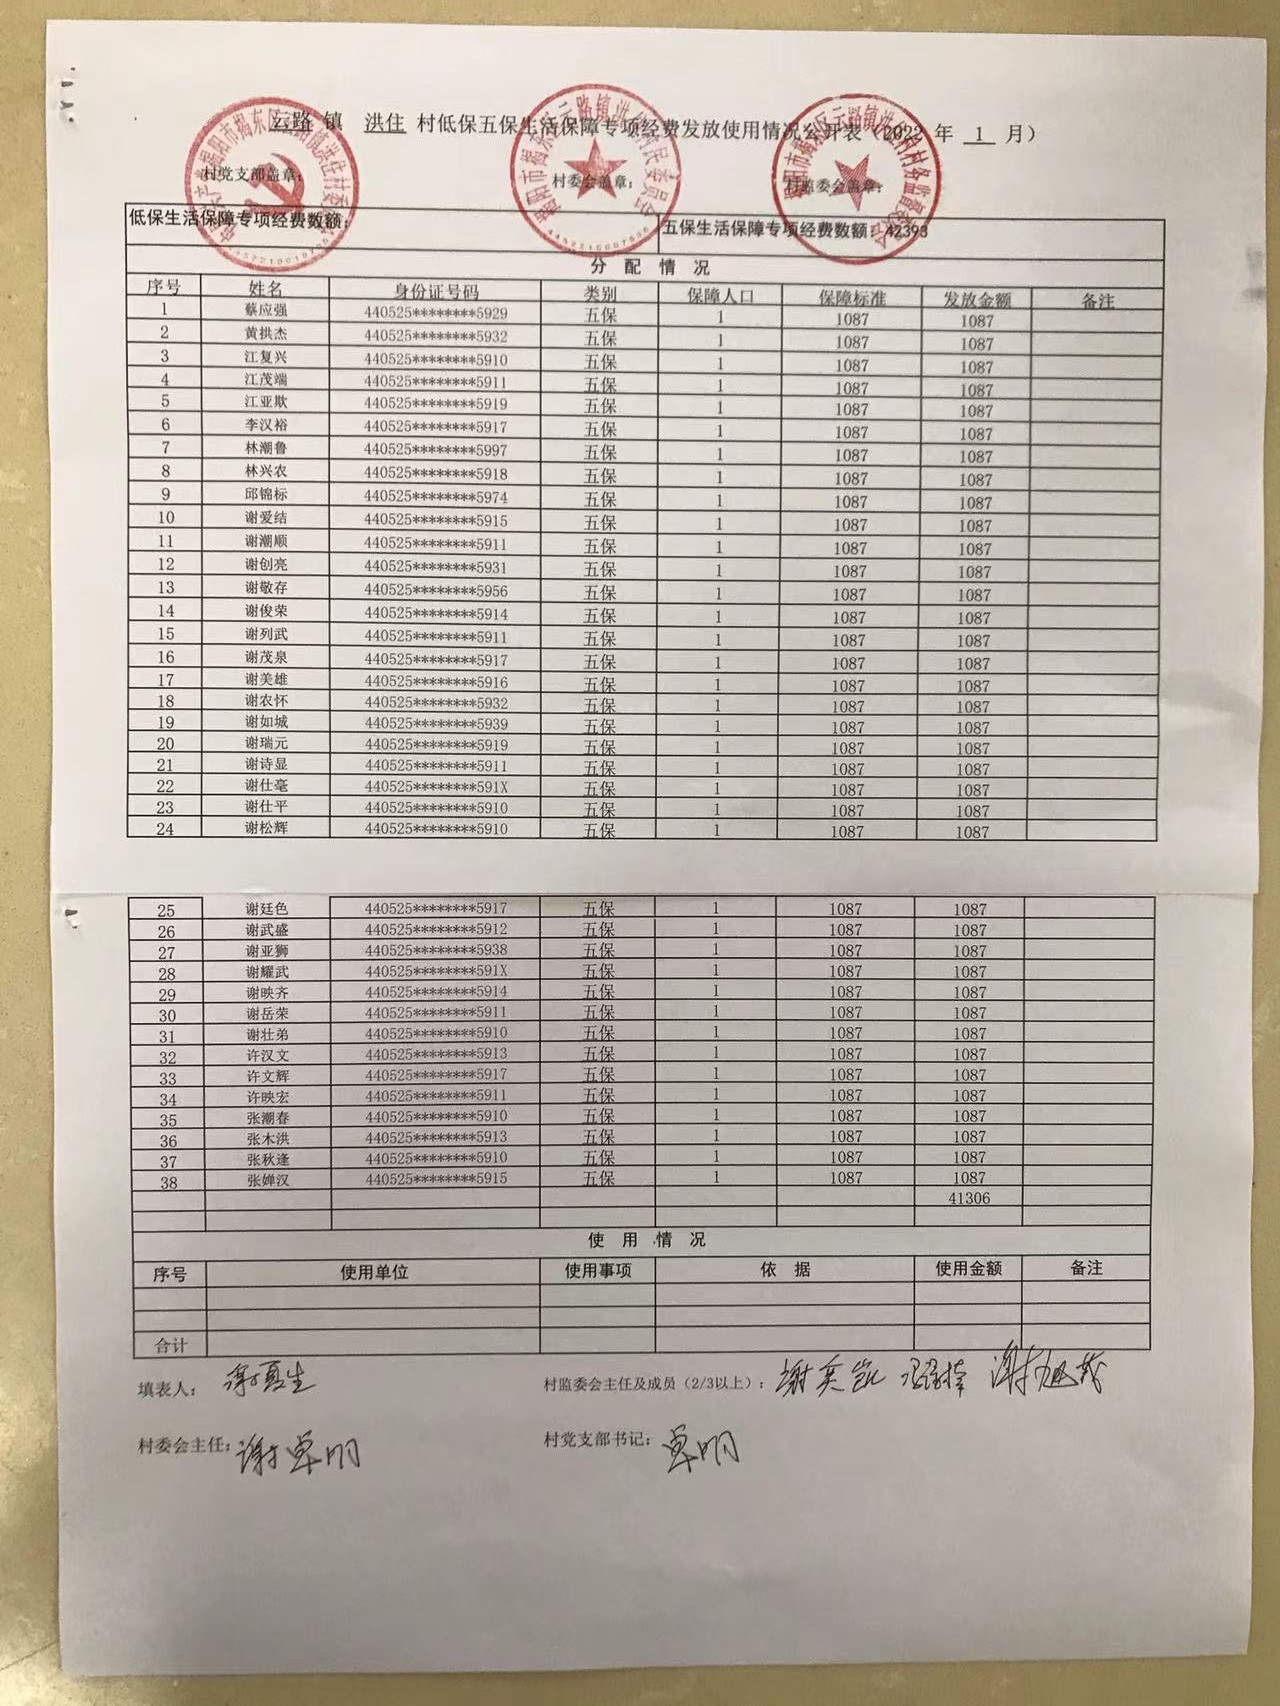 云路 镇 洪住 村低保五保生活保障专项经费发放使用情况公开表（2022 年 1 月）
村党支部盖章： 村委会盖章： 村监委会盖章：
低保生活保障专项经费数额： 五保生活保障专项经费数额：42393
分 配 情 况
序号 姓名 身份证号码 类别 保障人口 保障标准 发放金额 备注
1 蔡应强 440525********5929 五保 1 1087 1087
2 黄拱杰 440525********5932 五保 1 1087 1087
3 江复兴 440525********5910 五保 1 1087 1087
4 江茂端 440525********5911 五保 1 1087 1087
5 江亚欺 440525********5919 五保 1 1087 1087
6 李汉裕 440525********5917 五保 1 1087 1087
7 林潮鲁 440525********5997 五保 1 1087 1087
8 林兴农 440525********5918 五保 1 1087 1087
9 邱锦标 440525********5974 五保 1 1087 1087
10 谢爱结 440525********5915 五保 1 1087 1087
11 谢潮顺 440525********5911 五保 1 1087 1087
12 谢创亮 440525********5931 五保 1 1087 1087
13 谢敬存 440525********5956 五保 1 1087 1087
14 谢俊荣 440525********5914 五保 1 1087 1087
15 谢列武 440525********5911 五保 1 1087 1087
16 谢茂泉 440525********5917 五保 1 1087 1087
17 谢美雄 440525********5916 五保 1 1087 1087
18 谢农怀 440525********5932 五保 1 1087 1087
19 谢如城 440525********5939 五保 1 1087 1087
20 谢瑞元 440525********5919 五保 1 1087 1087
21 谢诗显 440525********5911 五保 1 1087 1087
22 谢仕毫 440525********591X 五保 1 1087 1087
23 谢仕平 440525********5910 五保 1 1087 1087
24 谢松辉 440525********5910 五保 1 1087 1087
25 谢廷色 440525********5917 五保 1 1087 1087
26 谢武盛 440525********5912 五保 1 1087 1087
27 谢亚狮 440525********5938 五保 1 1087 1087
28 谢耀武 440525********591X 五保 1 1087 1087
29 谢映齐 440525********5914 五保 1 1087 1087
30 谢岳荣 440525********5911 五保 1 1087 1087
31 谢壮弟 440525********5910 五保 1 1087 1087
32 许汉文 440525********5913 五保 1 1087 1087
33 许文辉 440525********5917 五保 1 1087 1087
34 许映宏 440525********5911 五保 1 1087 1087
35 张潮春 440525********5910 五保 1 1087 1087
36 张木洪 440525********5913 五保 1 1087 1087
37 张秋逢 440525********5910 五保 1 1087 1087
38 张婵汉 440525********5915 五保 1 1087 1087
41306
使 用 情 况
序号 使用单位 使用事项 依 据 使用金额 备注
合计
填表人： 村监委会主任及成员（2/3以上）：
村委会主任：谢卓明 村党支部书记：卓明